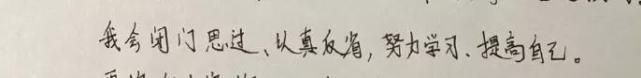 我会闭门思过、认真反省,努力学习、提高自己。